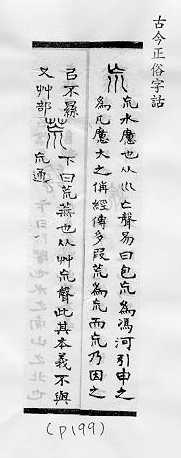 古今正俗字詁
㠩 㠩水廣也从川亡聲易曰包㠩用馮河引申之
為凡廣大之偁經傳多叚荒為㠩而㠩乃因之
又艸部 荒 下曰荒蕪也从艸㠩聲此其本義不與
㠩通
(P199)